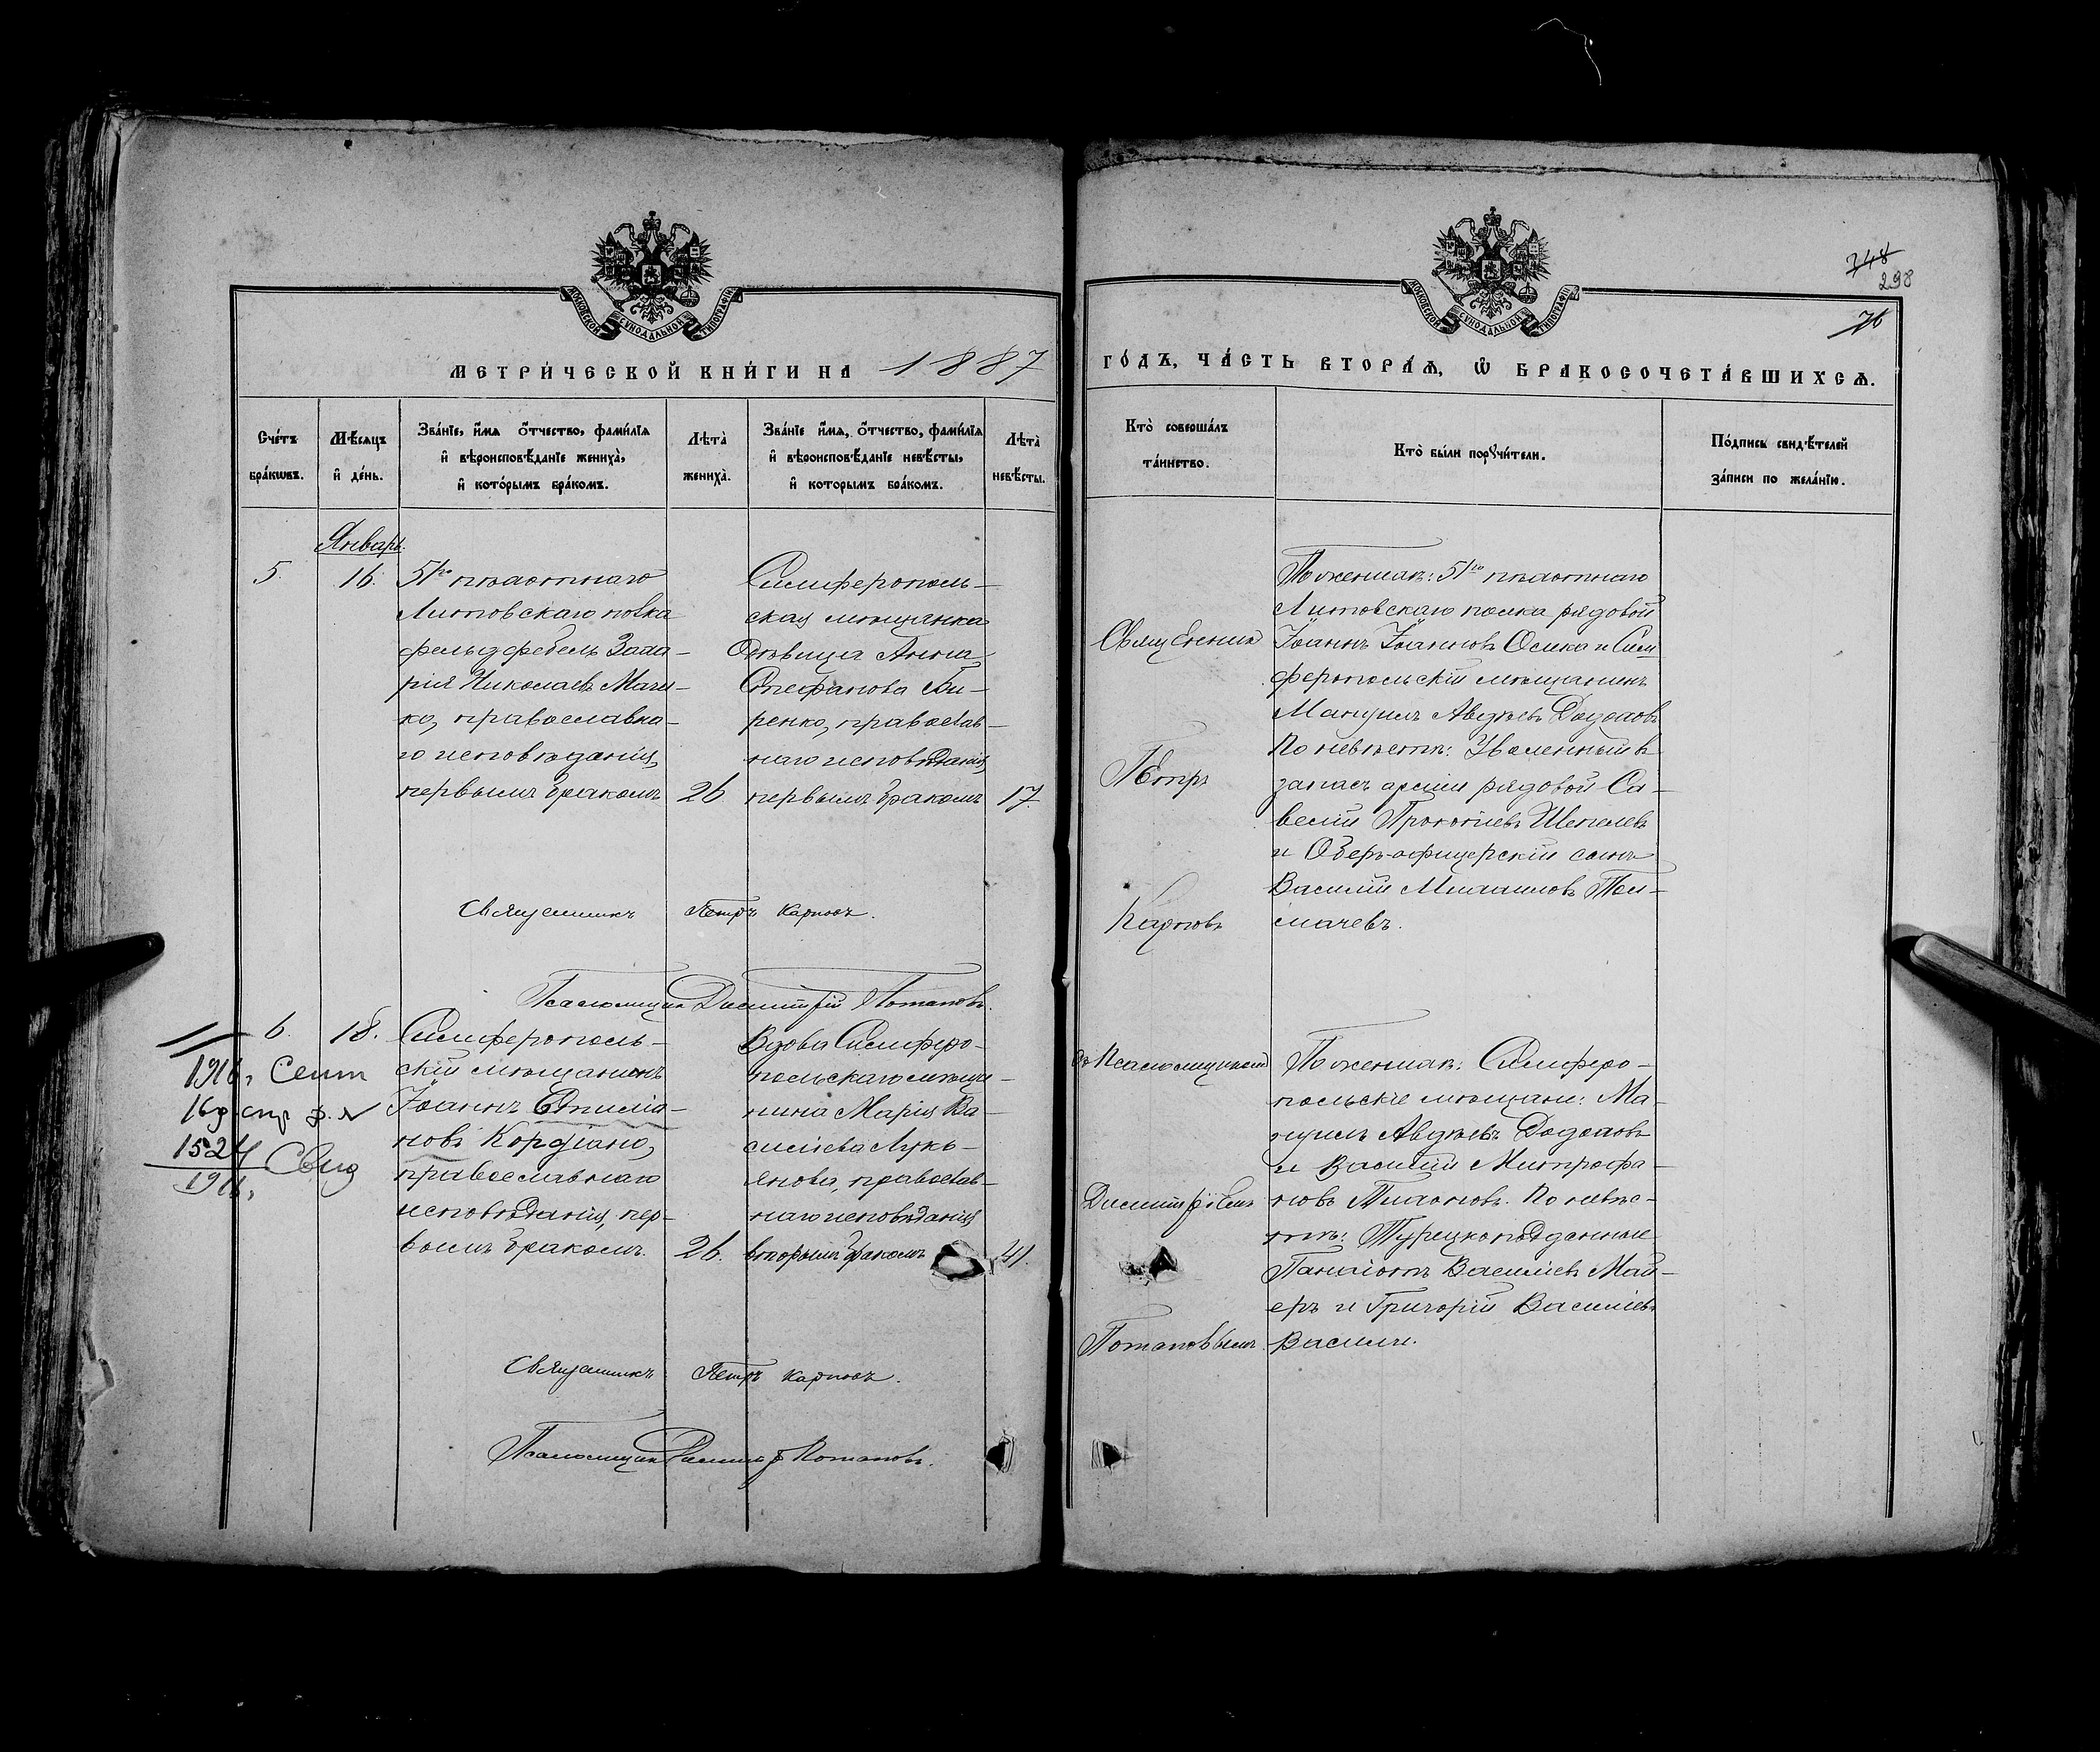 348
298
76
МОСКОВСКОЙ СУНОДАЛЬНОЙ ТИПОГРАФІИ
МОСКОВСКОЙ СУНОДАЛЬНОЙ ТИПОГРАФІИ
МЕТРИ́ЧЕСКОЙ КНИ́ГИ НА 1887
ГО́ДЪ, ЧА́СТЬ ВТОРА́Ѧ, Ѽ БРАКОСОЧЕТА́ВШИХСѦ.
Сче́тъ бра́кωвъ.
Мѣ́сѧцъ и҆ де́нь.
Зва́нїе, и҆́мѧ ѻ҆́тчество, фами́лїѧ
и҆ вѣроисповѣ́данїе жениха̀,
и҆ кото́рымъ бра́комъ.
Лѣта̀ жениха̀.
Зва́нїе и҆́мѧ, ѻ҆́тчество, фами́лїѧ
и҆ вѣроисповѣ́данїе невѣ́сты,
и҆ которымъ бра́комъ.
Лѣта̀ невѣ́сты.
Кто̀ соверша́лъ
та́инство.
Кто̀ бы́ли порꙋчи́тели.
По́дпись свидѣ́телей
за́писи по жела́нїю.
Январь.
5. 16.
51го пѣхотнаго
Литовскаго полка
фельдфебель Заха-
рія Николаевъ Мачи-
ко, православна-
го исповѣданія,
первымъ бракомъ 26.
Симферополь-
ская мѣщанка
Дѣвица Анна
Стефанова Би-
ренко, православ-
наго исповѣданія,
первымъ бракомъ 17.
Священникъ
Петръ
Карповъ
По женихѣ: 51го пѣхотнаго
Литовскаго полка рядовой
Іоаннъ Іоанновъ Осика и Сим
феропольскій мѣщанинъ
Мануилъ Авдѣевъ Додоховъ
По невѣстѣ: Уволенный въ
запасъ арміи рядовой Са-
велій Прокопіевъ Шепелевъ
и Оберъ-офицерскій сынъ
Василій Михаиловъ Тол-
мачевъ.
Священникъ Петръ Карповъ.
Псаломщикъ Димитрій Потаповъ.
6. 18.
Симферополь-
скій мѣщанинъ
Іоаннъ Емилія-
новъ Кордіано,
православнаго
исповѣданія, пер-
вымъ бракомъ. 26.
Вдова Симферо-
польскаго мѣща-
нина Марія Ва-
силіева Лукь-
янова, православ-
наго исповѣданія
вторымъ бракомъ 41.
1916, Сент
1524 Свид
съ Псаломщикомъ
Димитріемъ
Потаповымъ.
По женихѣ: Симферо-
польскіе мѣщане: Ма-
нуилъ Авдѣевъ Додоховъ
и Василій Митрофа-
новъ Тихоновъ. По невѣс-
тѣ: Турецкоподданные
Панаіотъ Василіевъ Май-
еръ и Григорій Василіевъ
Васили.
Священникъ Петръ Карповъ.
Псаломщикъ Димитр Потаповъ.